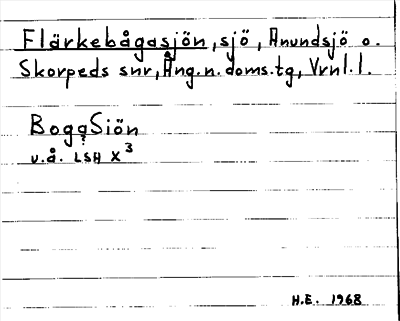 Flärkebågasjön, sjö, Anundsjö o.
Skorpeds snr, Ång.n.doms.tg, Vrnl.l.
BogaSiön
?
u.å. LSA X³
H.E. 1968